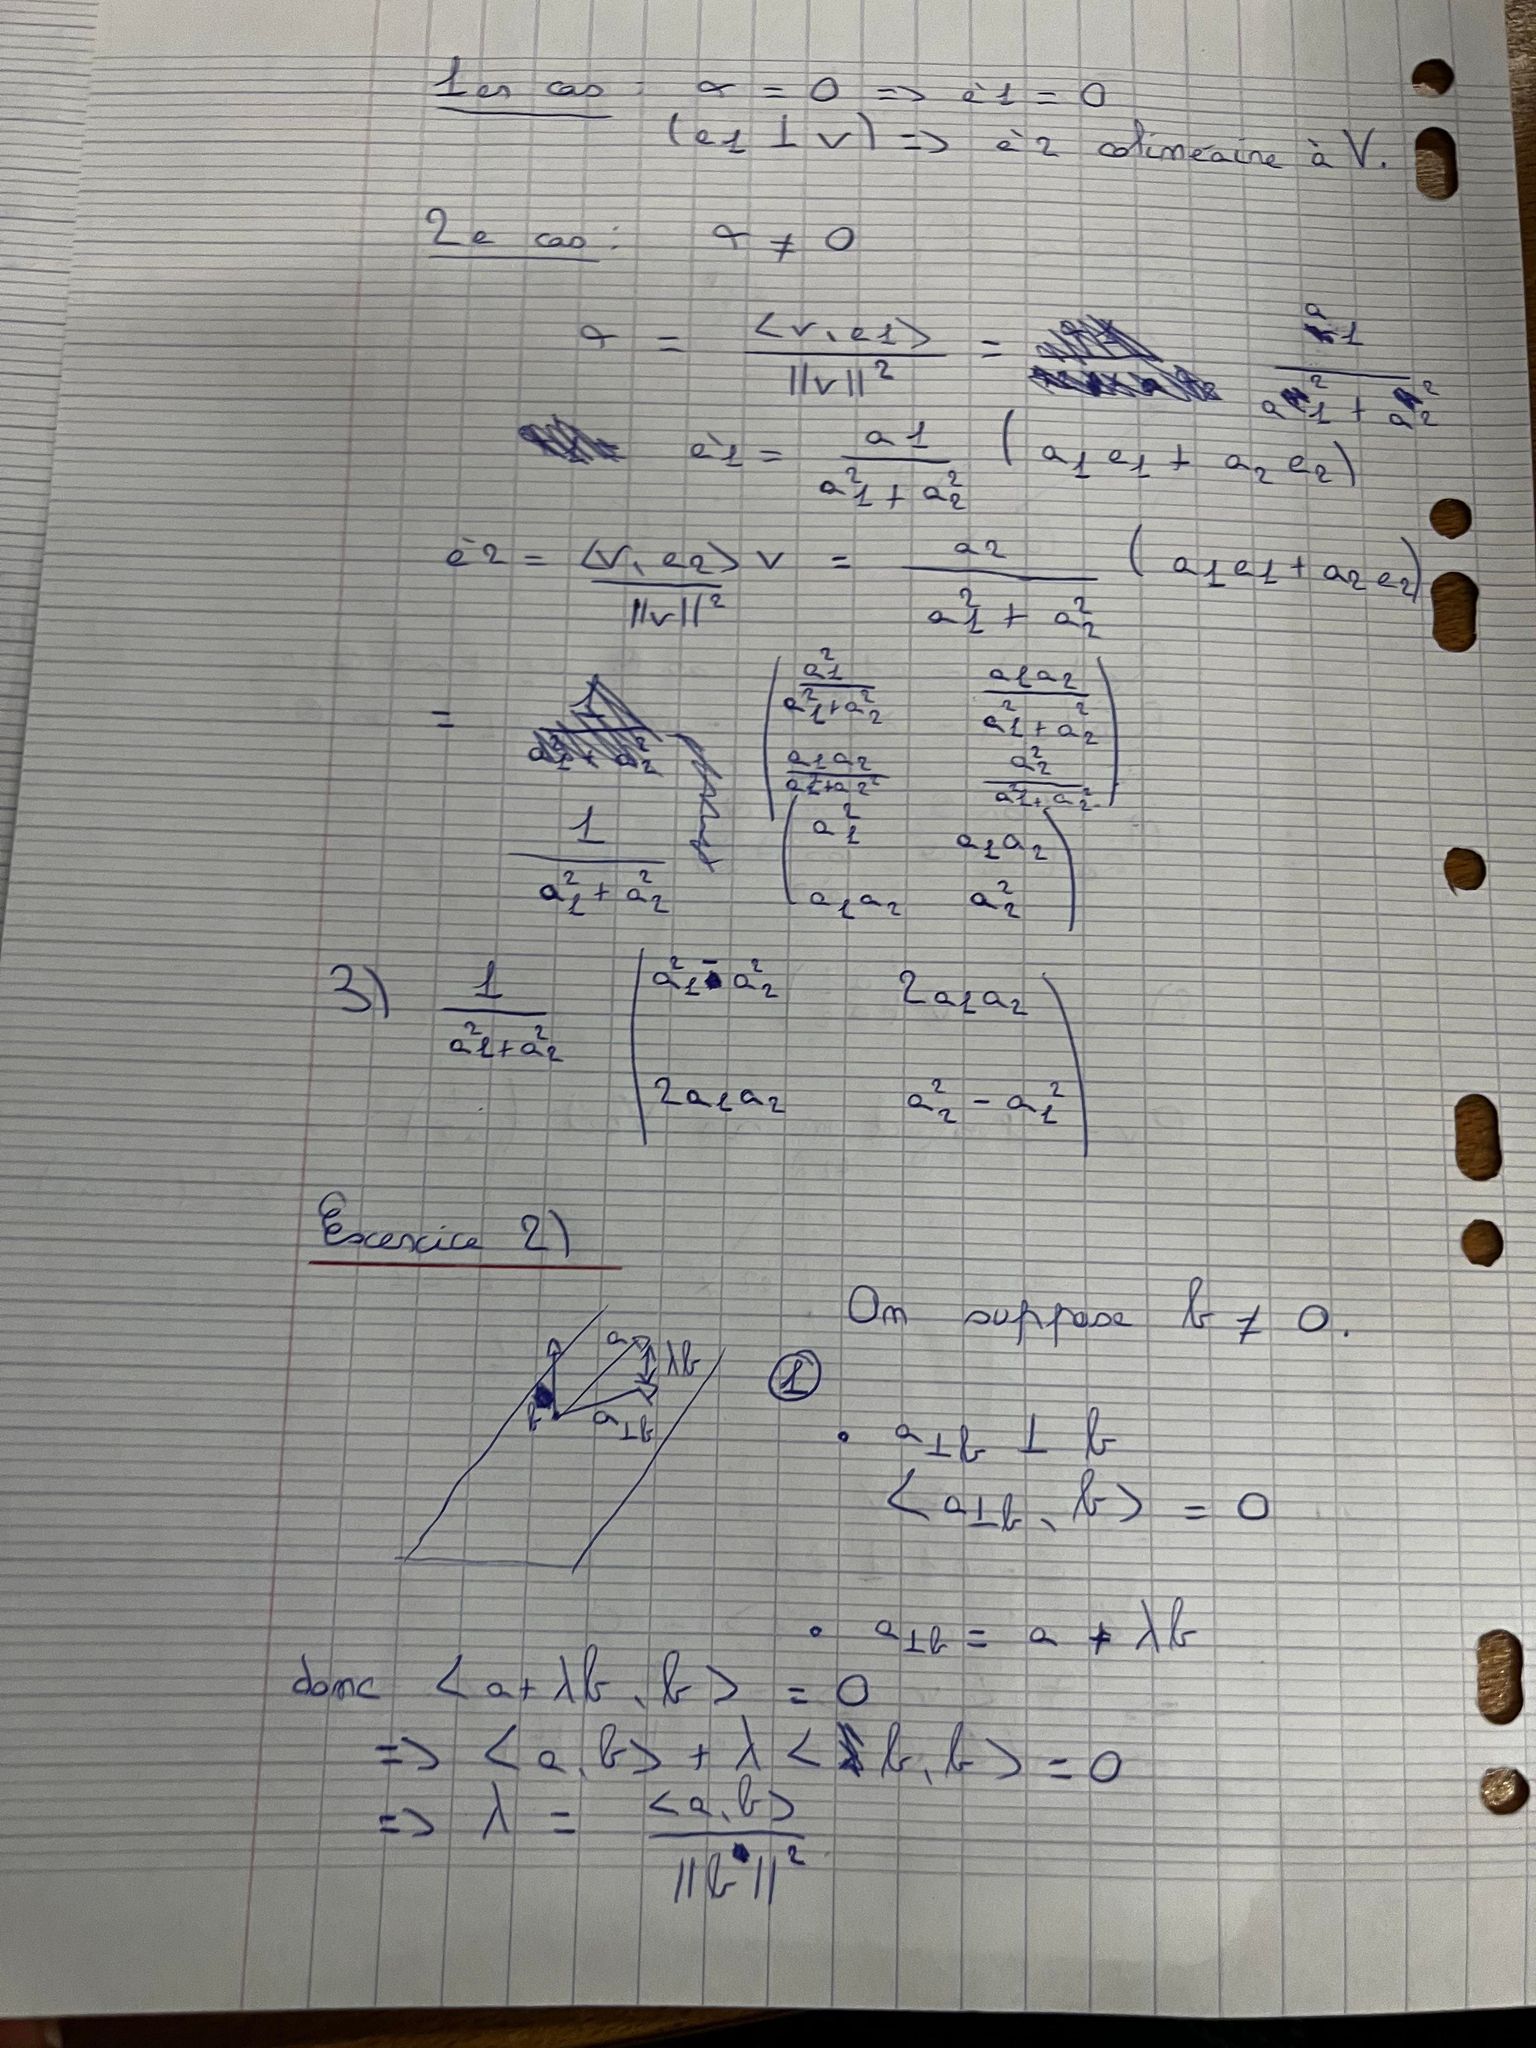 1er cas : α = 0 => è1 = 0
(e1 ⊥ v) => è2 colinéaire à V.
2e cas : α ≠ 0
α = <v, e1> / ||v||² = a1 / (a1² + a2²)
è1 = a1 / (a1² + a2²) (a1 e1 + a2 e2)
è2 = <v, e2> / ||v||² v = a2 / (a1² + a2²) (a1 e1 + a2 e2)
= ( a1² / (a1² + a2²) a1 a2 / (a1² + a2²)
a1 a2 / (a1² + a2²) a2² / (a1² + a2²) )
1 / (a1² + a2²) ( a1² a1 a2
a1 a2 a2² )
3) 1 / (a1² + a2²) ( a1² - a2² 2 a1 a2
2 a1 a2 a2² - a1² )
Excercice 2)
On suppose b ≠ 0.
a λb
b a⊥b
①
• a⊥b ⊥ b
<a⊥b, b> = 0
• a⊥b = a + λb
donc <a + λb, b> = 0
=> <a, b> + λ <b, b> = 0
=> λ = <a, b> / ||b||²